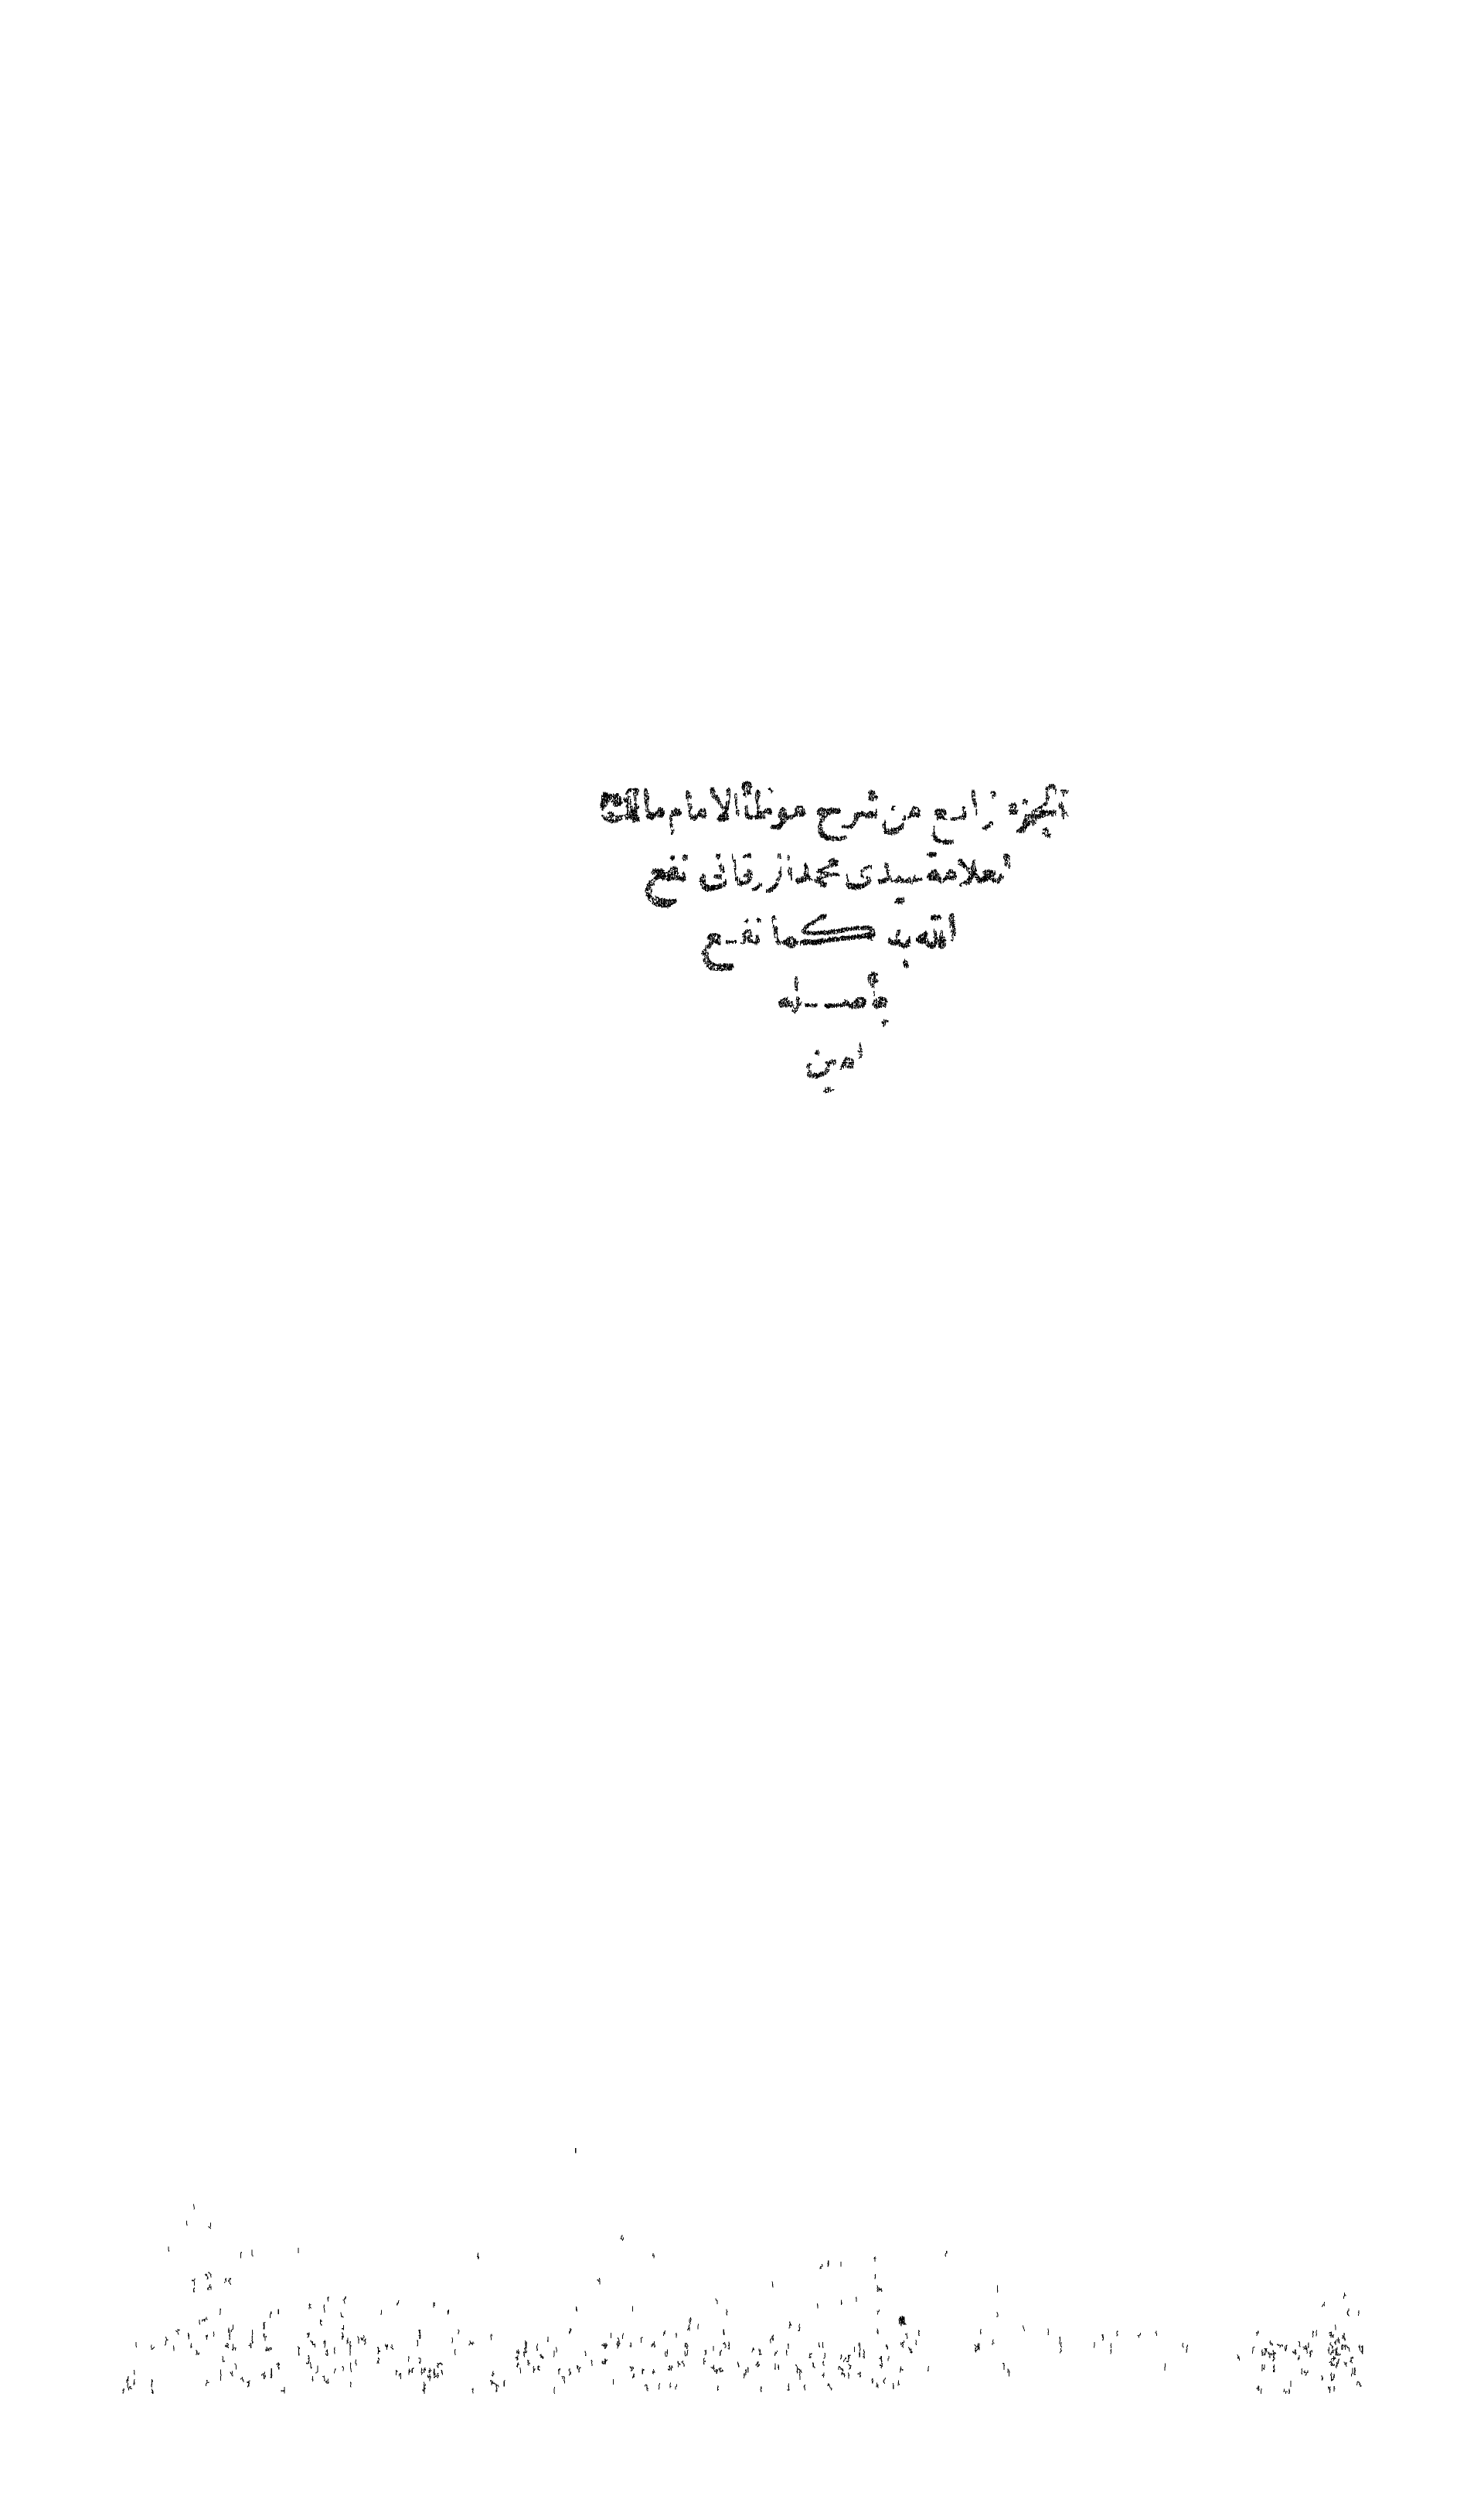 الجزء الرابع من شرح موطأ الامام مالك
للعلامة سيدى محمد الزرقانى نفع
الله به كما نفع
بأصله
امين